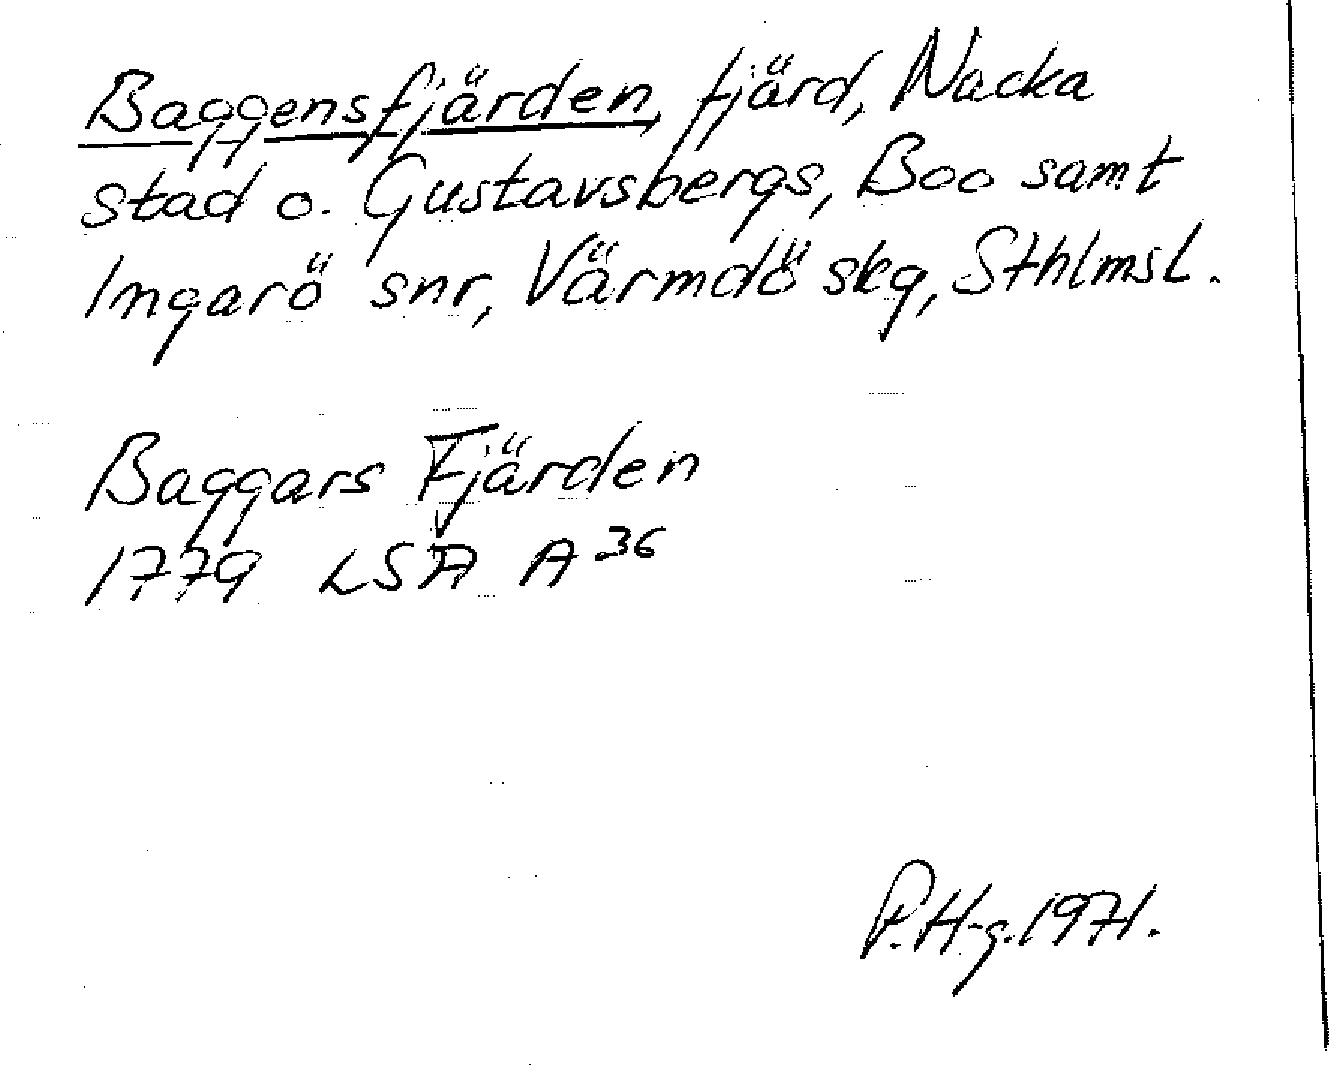 Baggensfjärden, fjärd, Nacka
stad o. Gustavsbergs, Boo samt
Ingarö snr, Värmdö skg, Sthlmsl.
Baggars Fjärden
1779 LSA A 36
P. H-g. 1971.